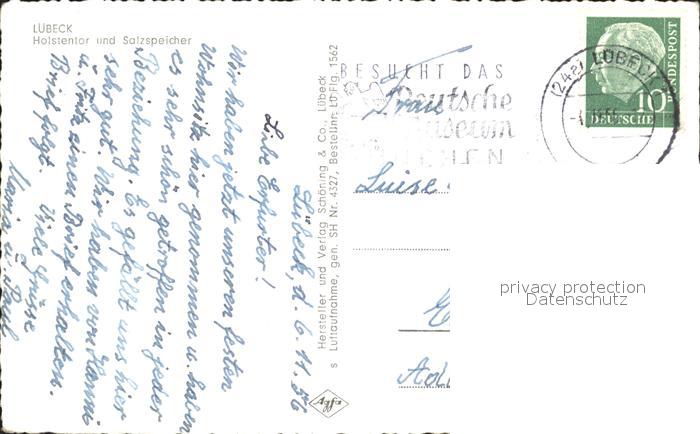 LÜBECK
Holstentor und Salzspeicher
Lübeck, d. 6. 11. 56
Liebe Erfurter!
Wir haben jetzt unseren festen
Wohnsitz hier genommen u. haben
es sehr schön getroffen in jeder
Beziehung. Es gefällt uns hier
sehr gut. Wir haben von Hanni
u. Fritz einen Brief erhalten.
Brief folgt. Viele Grüsse
Maria u. Paul
Hersteller und Verlag Schöning & Co., Lübeck
s Luftaufnahme, gen. SH Nr. 4327, Bestellnr. Lü Flg. 1562
Agfa
BESUCHT DAS
Deutsche
Museum
MÜNCHEN
(24a) LÜBECK
10
DEUTSCHE
BUNDESPOST
Frau
Luise
privacy protection
Datenschutz